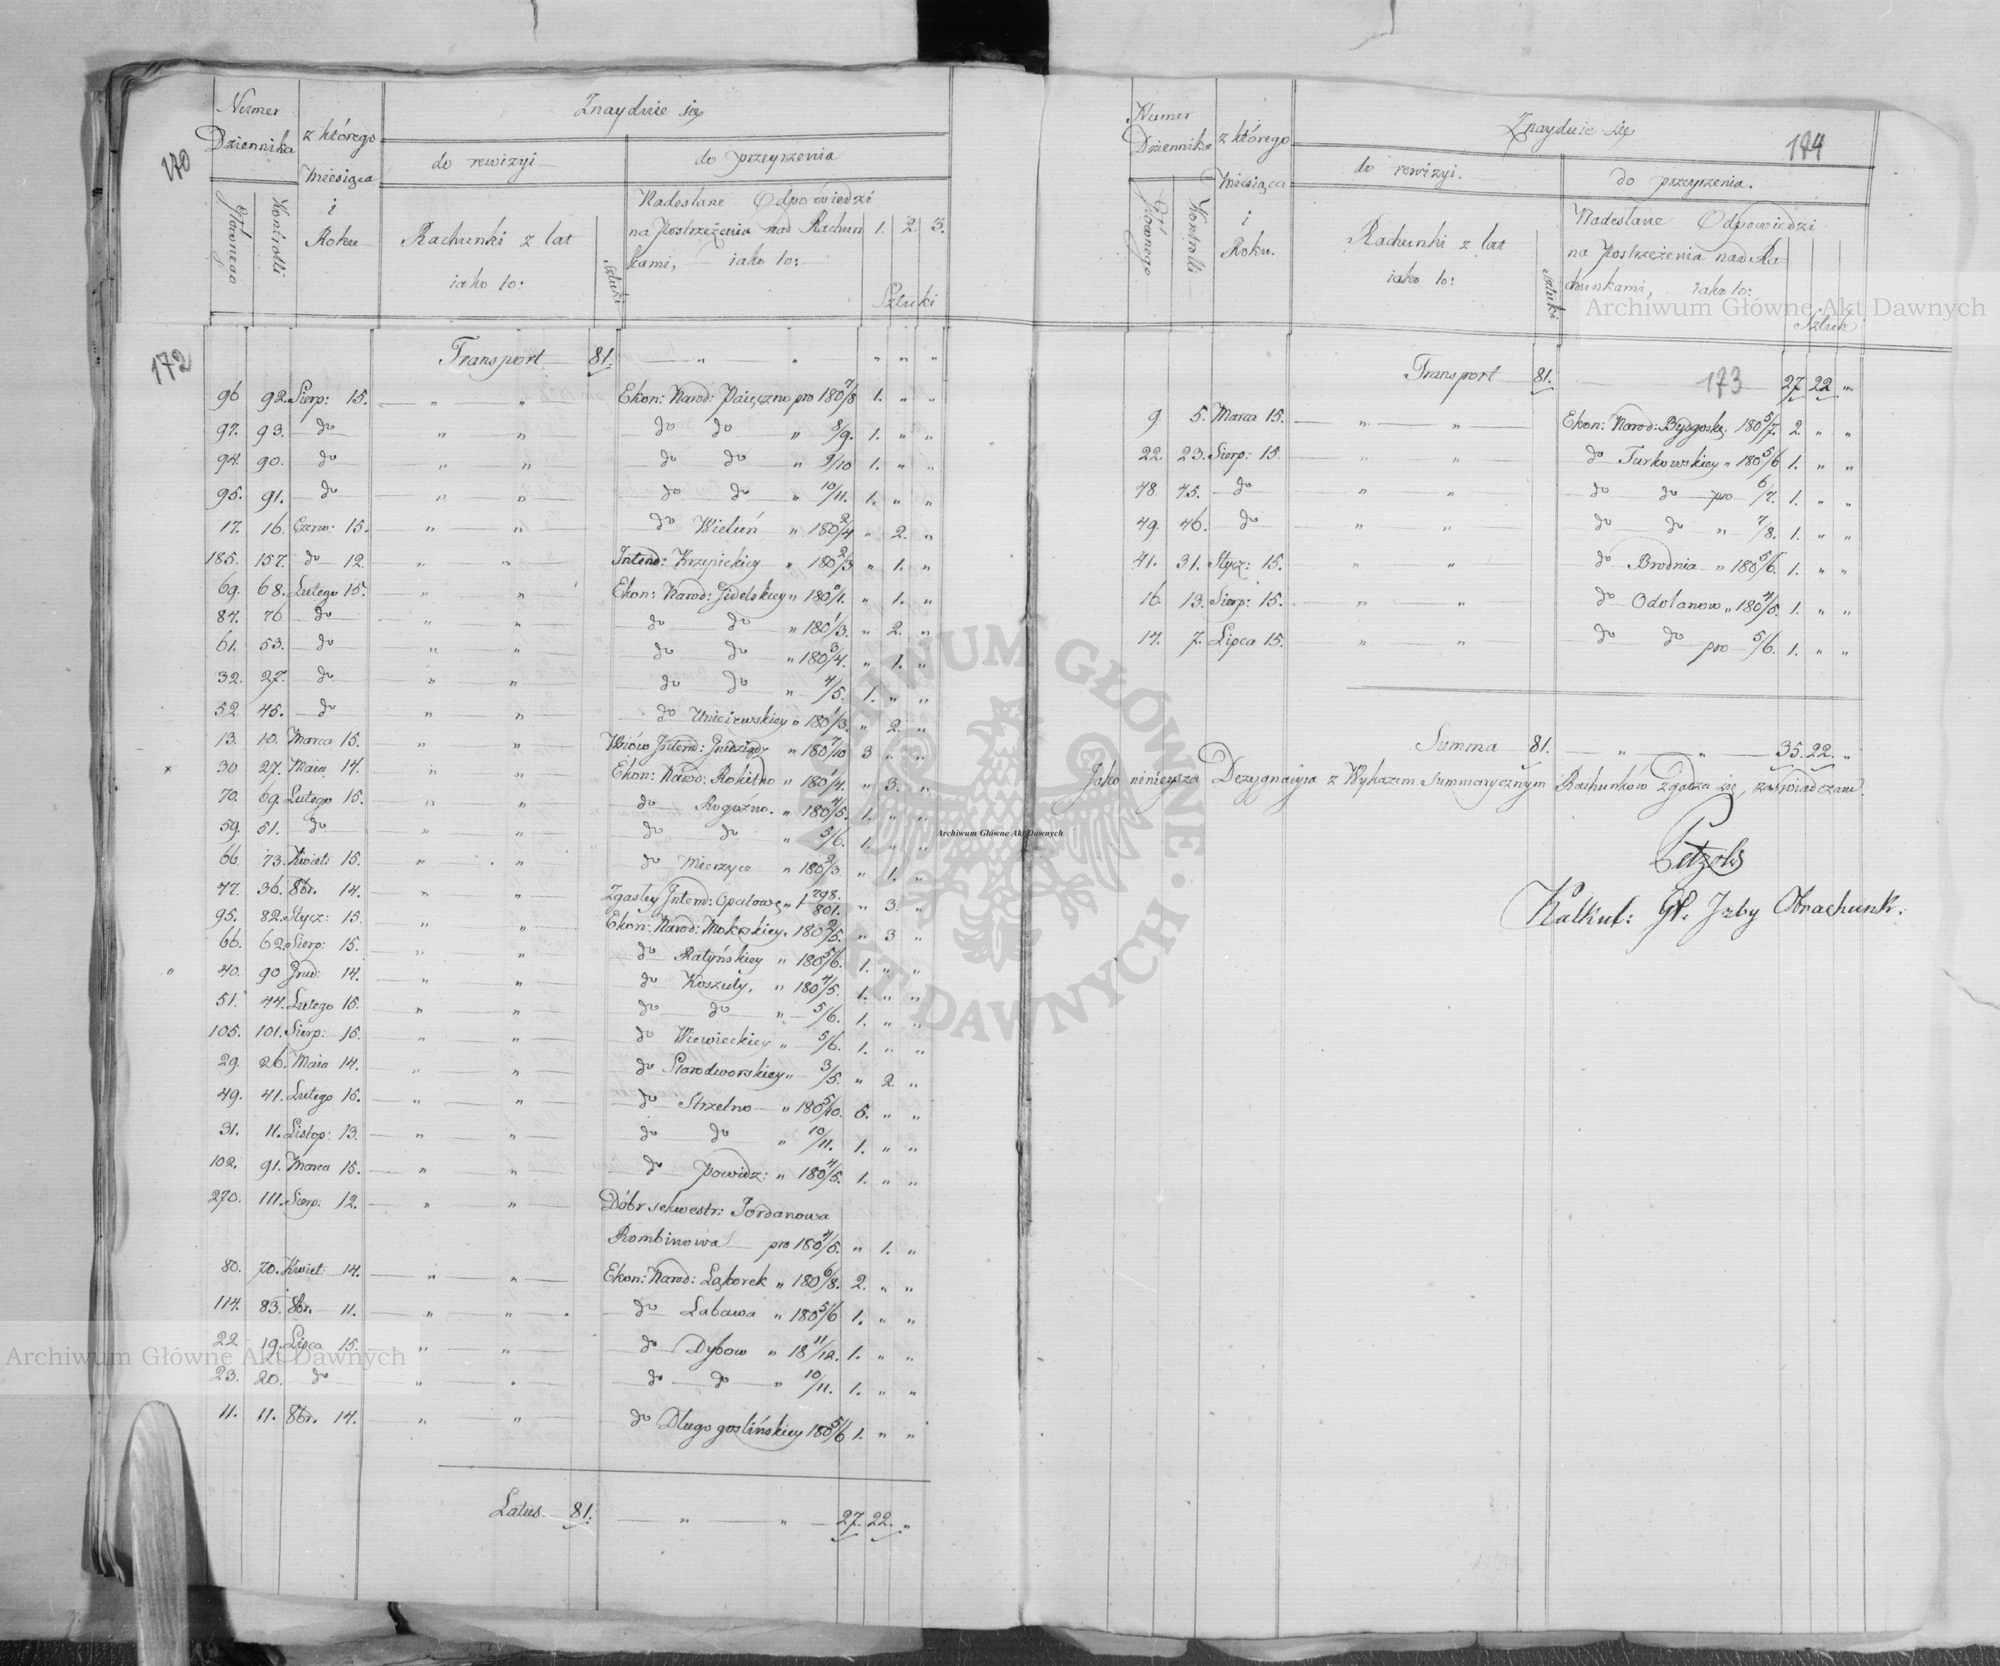 170
Numer Dziennika
Głównego
Kontrolli
z którego Miesiąca i Roku
Znayduie się
do rewizyi
do przeyrzenia
Rachunki z lat
iako to:
Sztuki
Nadesłane Odpowiedzi
na Postrzeżenia nad Rachun 1. 2. 3.
kami, iako to:
Sztuki
172
Transport 81. " " " " "
96 92. Sierp: 15. " " Ekon: Narod: Paięczno pro 180 7/8 1. " "
97. 93. do " " do do " 8/9. 1. " "
94. 90. do " " do do " 9/10 1. " "
95. 91. do " " do do " 10/11. 1. " "
17. 16. Czerw: 15. " " do Wieluń " 180 2/4 " 2. "
185. 157. do 12. " " Intend: Krzepickiey " 180 2/3 " 1. "
69. 68. Lutego 15. " " Ekon: Narod: Gidelskiey " 180 0/1. " 1. "
84. 76 do " " do do " 180 1/3. " 2. "
61. 53. do " " do do " 180 3/4. " 1. "
32. 27. do " " do do " 4/5. 1. " "
52 45. do " " do Unieiewskiey " 180 1/3. " 2. "
13. 10. Marca 15. " " Wsiów Intend: " 180 7/10 3 " "
30 27. Maia 14. " " Ekon: Narod: Rokitno " 180 1/4. " 3. "
70. 69. Lutego 15. " " do Rogozno. " 180 4/5. 1. " "
59. 51. do " " do do " 5/6. 1. " "
66 73. Kwiet: 15. " " do Mierzyce " 180 2/3. " 1. "
47. 36. 8br. 14. " " Zgasłey Intend: Opatowę " 1 798./801. " 3. "
95. 82. Stycz: 15. " " Ekon: Narod: Mokrskiey. 180 2/5. " 3 "
66. 62. Sierp: 15. " " do Ratyńskiey " 180 5/6. 1. " "
40. 90 Grud: 14. " " do Koszuty, " 180 4/5. 1. " "
51. 44. Lutego 15. " " do do " 5/6. 1. " "
105. 101. Sierp: 15. " " do Wiewieckiey " 5/6. 1. " "
29. 26. Maia 14. " " do Starodworskiey " 3/5. " 2. "
49. 41. Lutego 15. " " do Strzelno " 180 5/10. 5. " "
31. 11. Listop: 13. " " do do " 10/11. 1. " "
102. 91. Marca 15. " " do Powidz: " 180 4/5. 1. " "
270. 111. Sierp: 12. " " Dóbr sekwestr: Jordanowa
Rombinowa pro 180 4/5. " 1. "
80. 70. Kwiet: 14. " " Ekon: Narod: Łąkorek " 180 6/8. 2. " "
114. 83. 8br. 11. " " do Łabawa " 180 5/6 1. " "
22 19. Lipca 15. " " do Dybow " 18 11/12. 1. " "
23. 20. do " " do do " 10/11. 1. " "
11. 11. 8br. 14. " " do Długo goslińskiey 180 5/6 1. " "
Latus 81. " " 27. 22. "
Numer Dziennika
Głównego
Kontrolli
z którego Miesiąca i Roku.
Znayduie się
174
do rewizyi.
do przeyrzenia.
Rachunki z lat
iako to:
Sztuki
Nadesłane Odpowiedzi
na Postrzeżenia nad Ra-
chunkami, iako to:
Sztuk
Transport 81. 173 27 22 "
9 5. Marca 15. " " Ekon: Narod: Bydgosk. 180 5/7. 2. " "
22. 23. Sierp: 15. " " do Turkowskiey " 180 5/6 1. " "
48. 45. do " " do do pro 6/7. 1. " "
49. 46. do " " do do " 7/8. 1. " "
41. 31. Stycz: 15. " " do Brodnia " 180 5/6. 1. " "
16. 13. Sierp: 15. " " do Odolanow " 180 4/5. 1. " "
14. 7. Lipca 15. " " do do pro 5/6. 1. " "
Summa 81. " " 35. 22. "
Jako nineysza Dezygnacyia z Wykazem Summarycznym Rachunków Zgadza się, zaświadczam.
Petzold
Kalkul: Gł. Izby Obrachunk:
Archiwum Główne Akt Dawnych
Archiwum Główne Akt Dawnych
Archiwum Główne Akt Dawnych
ARCHIWUM GŁÓWNE · AKT DAWNYCH ·